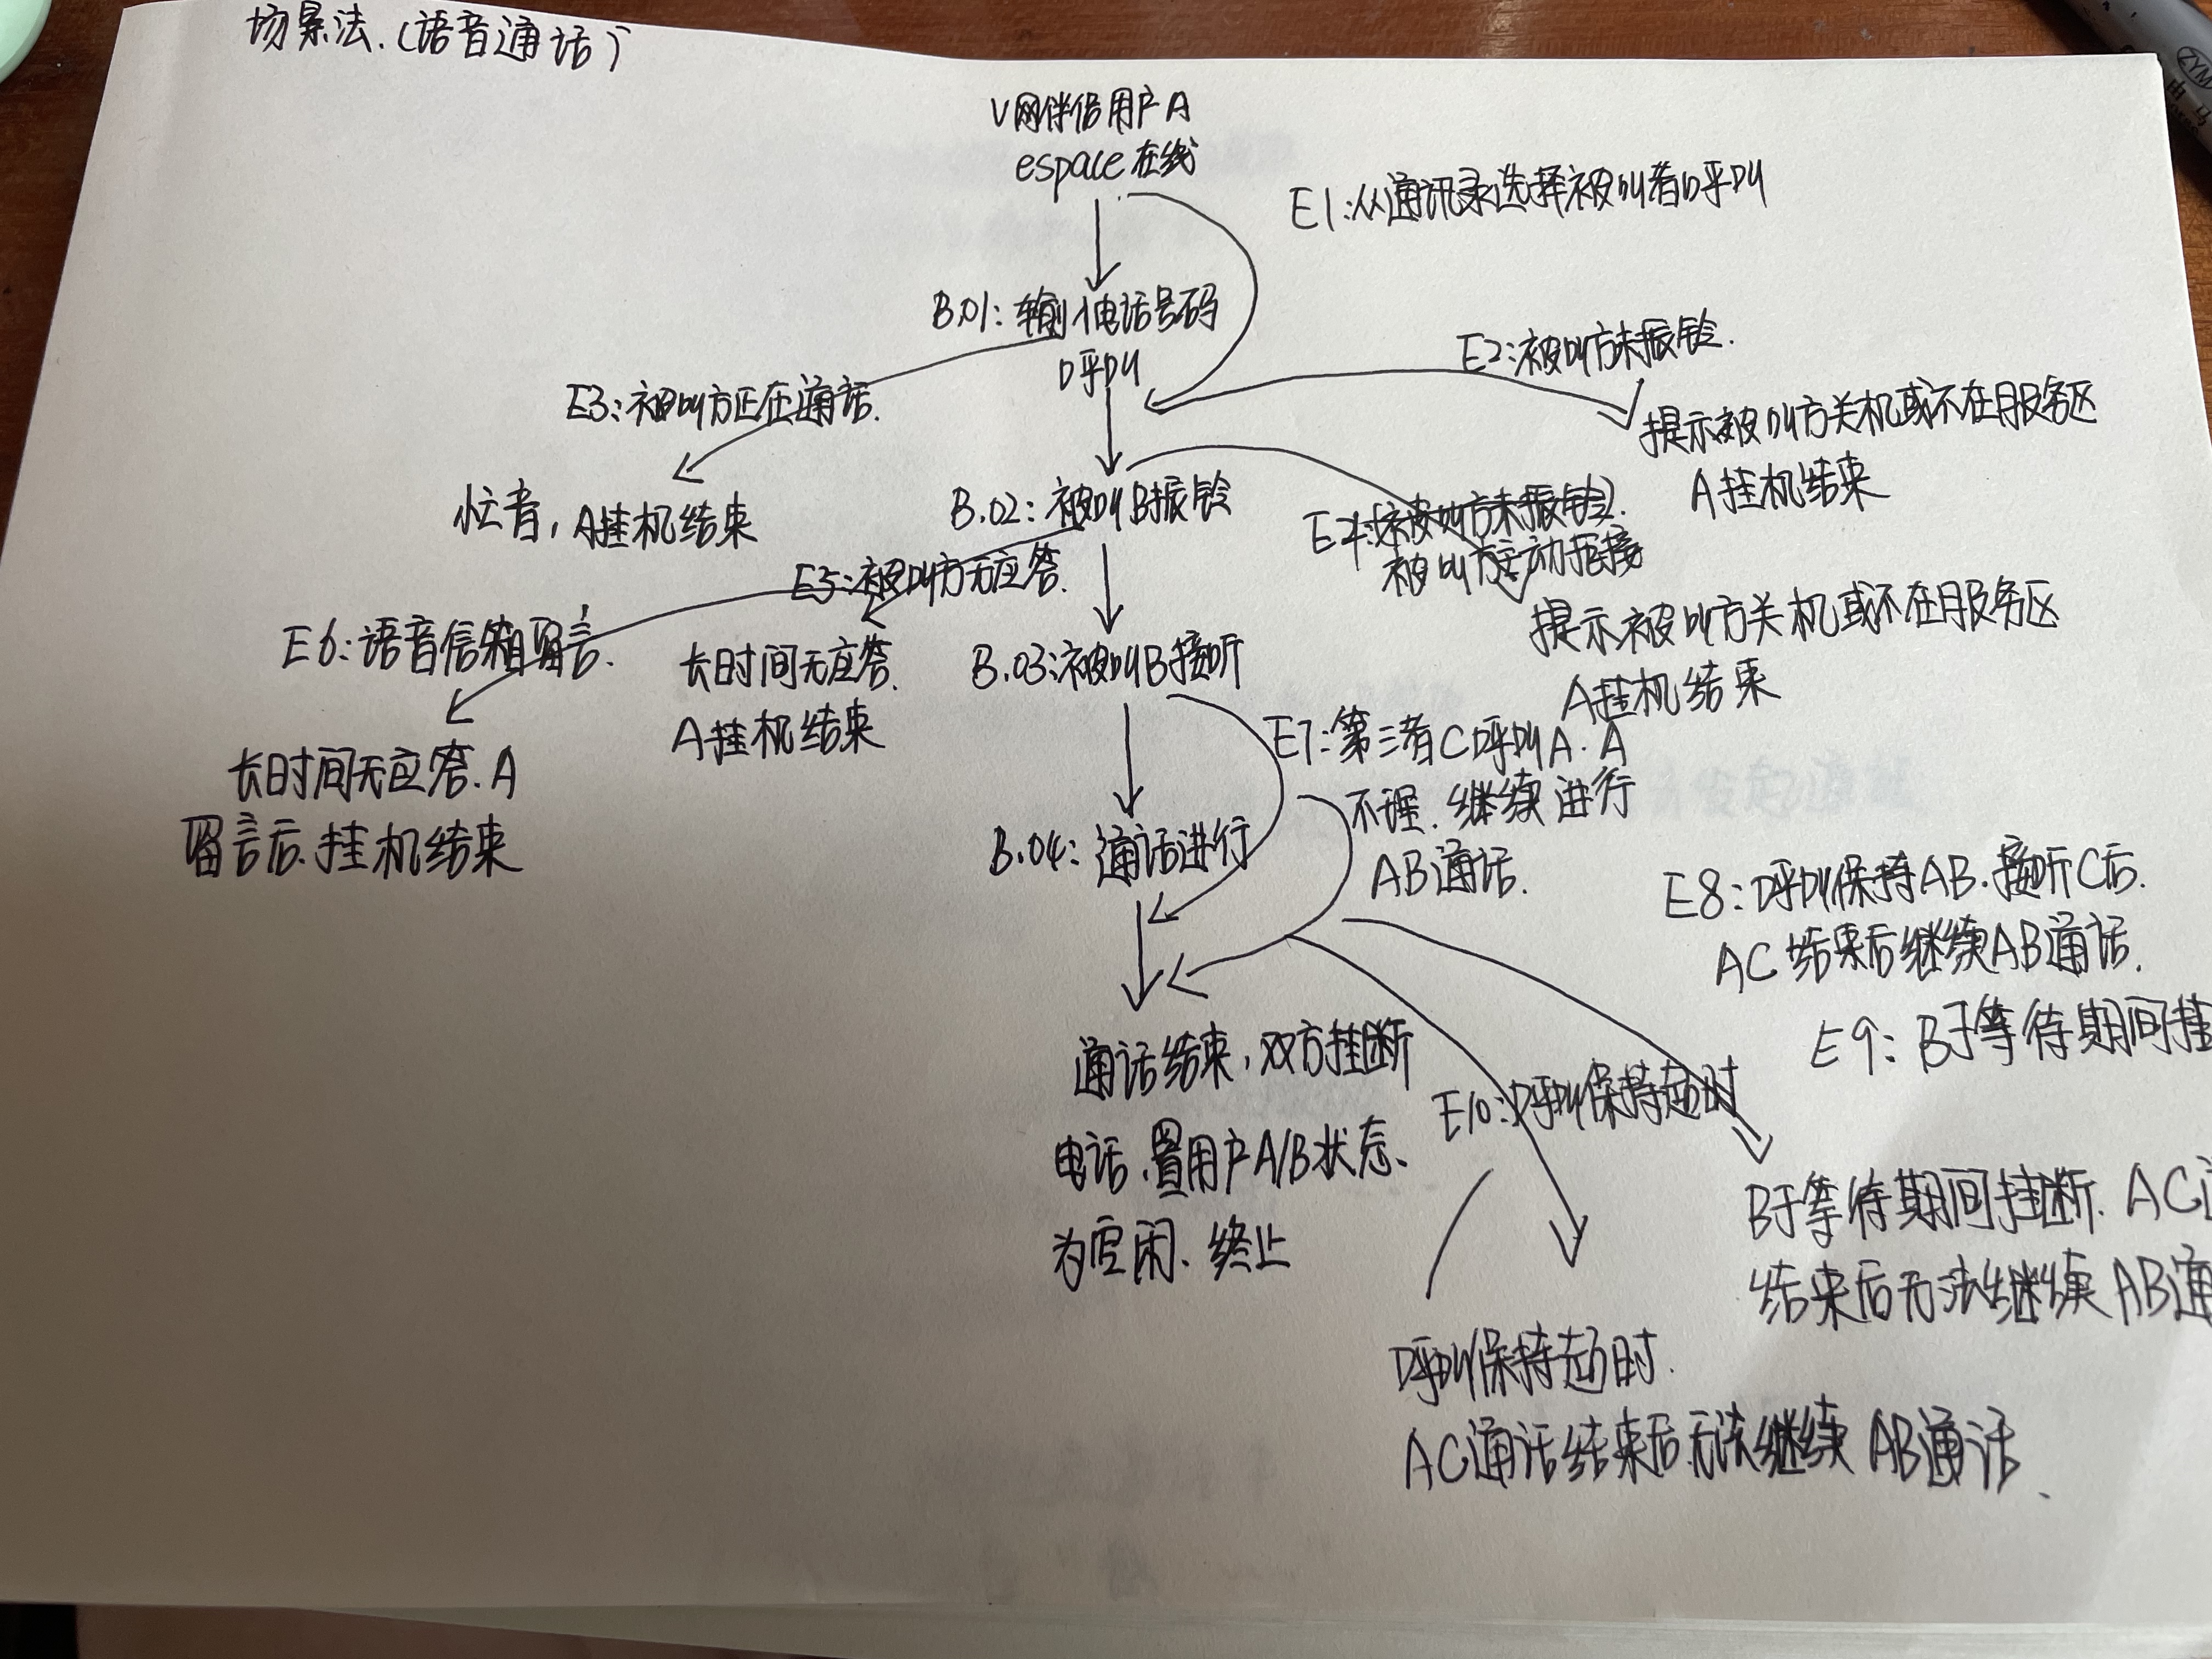 场景法.(语音通话)
V网伴侣用户A
espace在线
E1:从通讯录选择被叫者呼叫
B.01:输入电话号码
呼叫
E2:被叫方未振铃.
提示被叫方关机或不在服务区
A挂机结束
E3:被叫方正在通话.
忙音,A挂机结束
B.02:被叫B振铃
E4:被叫方未振铃).
被叫方主动拒接
提示被叫方关机或不在服务区
A挂机结束
E5:被叫方无应答.
长时间无应答.
A挂机结束
E6:语音信箱留言.
长时间无应答.A
留言后.挂机结束
B.03:被叫B接听
E7:第三者C呼叫A.A
不理.继续进行
AB通话.
B.04:通话进行
E8:呼叫保持AB.接听C后.
AC结束后继续AB通话.
E9:B于等待期间挂
通话结束,双方挂断
电话.置用户A/B状态、
为空闲、终止
E10:呼叫保持超时
B于等待期间挂断.AC
结束后无法继续AB通
呼叫保持超时.
AC通话结束后.无法继续AB通话、